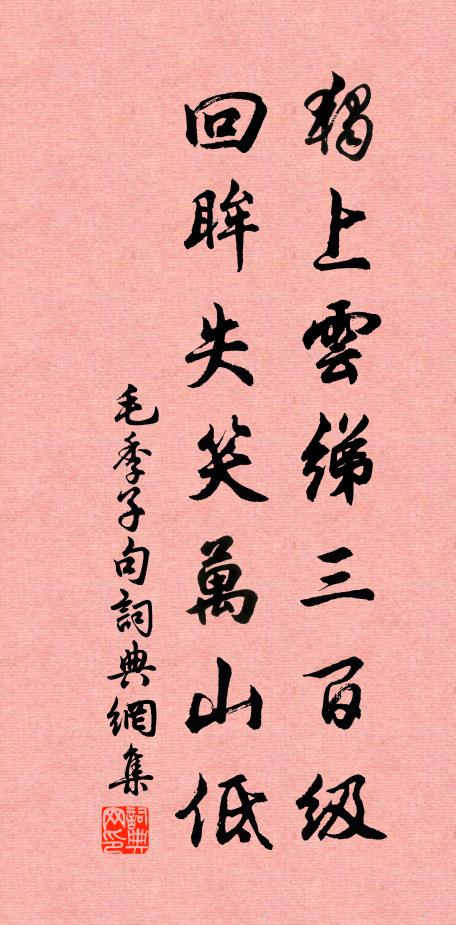 獨上雲綈三百級
回眸失笑萬山低
毛季子句詞典網集
詞典
网印